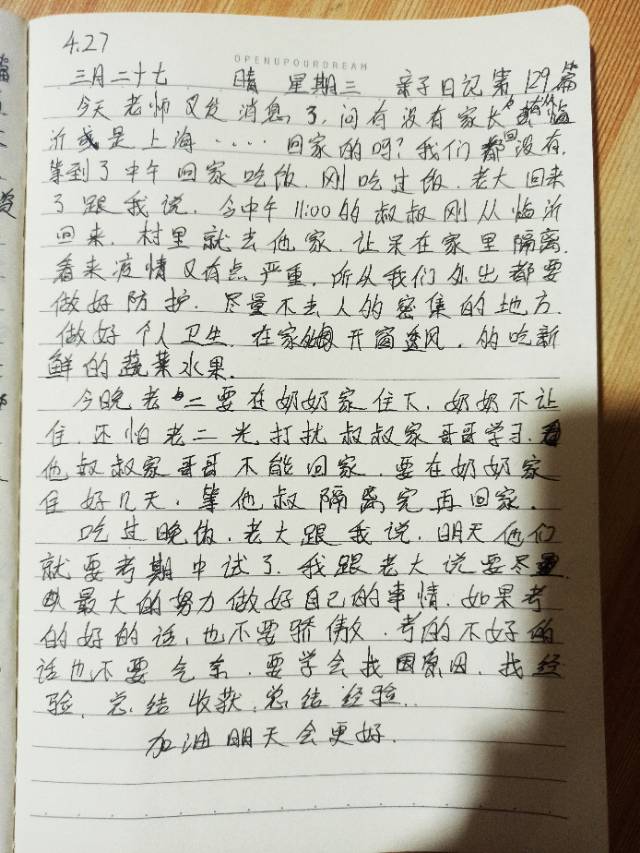 4.27
OPENUPOURDREAM
三月二十七 晴 星期三 亲子日记第129篇
今天老师又发消息了,问有没有家长去临
沂或是上海····回家的吗?我们都没有.
等到了中午回家吃饭.刚吃过饭.老大回来
了跟我说.今中午11:00的叔叔刚从临沂
回来.村里就去他家.让呆在家里隔离.
看来疫情又有点严重.所以我们外出都要
做好防护.尽量不去人的密集的地方.
做好个人卫生.在家开窗通风.的吃新
鲜的蔬菜水果.
今晚老二要在奶奶家住下.奶奶不让
住.还怕老二光打扰叔叔家哥哥学习.
他叔叔家哥哥不能回家.要在奶奶家
住好几天.等他叔隔离完再回家.
吃过晚饭.老大跟我说.明天他们
就要考期中试了.我跟老大说要尽
最大的努力做好自己的事情.如果考
的好的话,也不要骄傲.考的不好的
话也不要气条.要学会找原因.找经
验.总结收获.总结经验.
加油明天会更好.